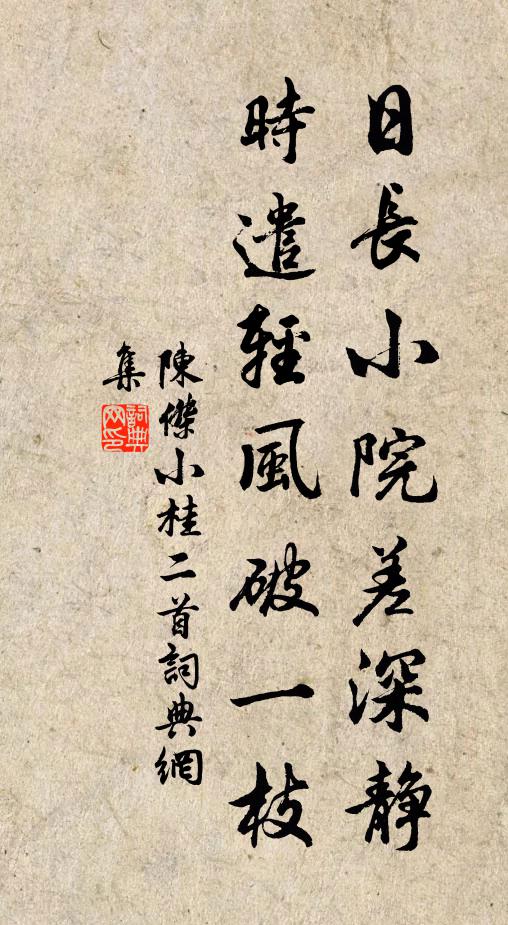 日長小院差深静
時遣輕風破一枝
陳傑小桂二首詞典網
集
詞典
网印